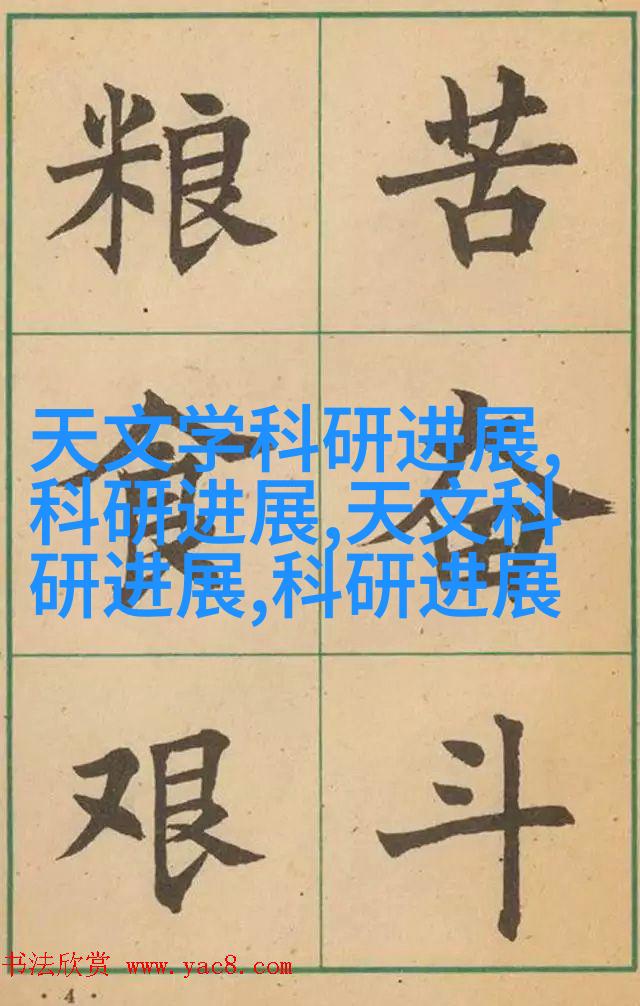 粮食艰
苦奋斗
天文学科研进展,
科研进展,天文科
研进展,科研进展
书法欣赏 www.yac8.com
· 4 ·